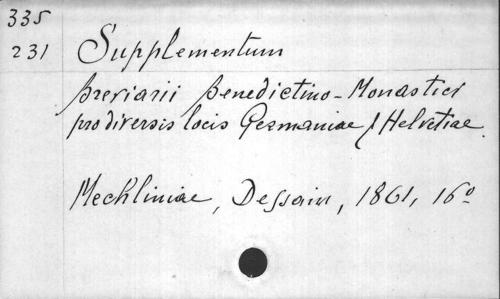 335
231
Supplementum
Breviarii Benedictino-Monastici
pro diversis locis Germaniae / Helvetiae.
Mechliniae, Dessain, 1861, 16º